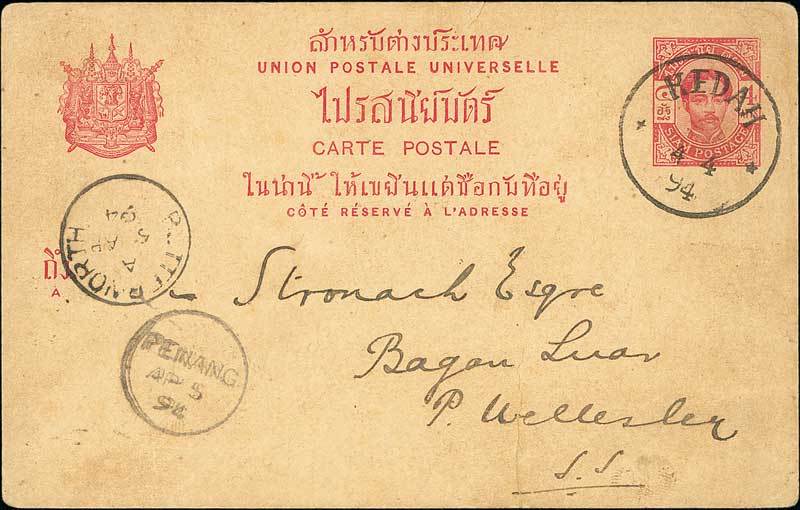 สำหรับต่างประเทศ
UNION POSTALE UNIVERSELLE
ไปรสนิย์บัตร์
CARTE POSTALE
ในน่านี้ ให้เขยีนแต่ชื่อกับที่อยู่
CÔTÉ RÉSERVÉ À L'ADRESSE
SIAM POSTAGE
KEDAH
4 4
94
NORTH
A
AP 5
94
ถึง
A
Stronach Esqre
Bagan Luar
P. Wellesley
S.S
PENANG
AP 5
94